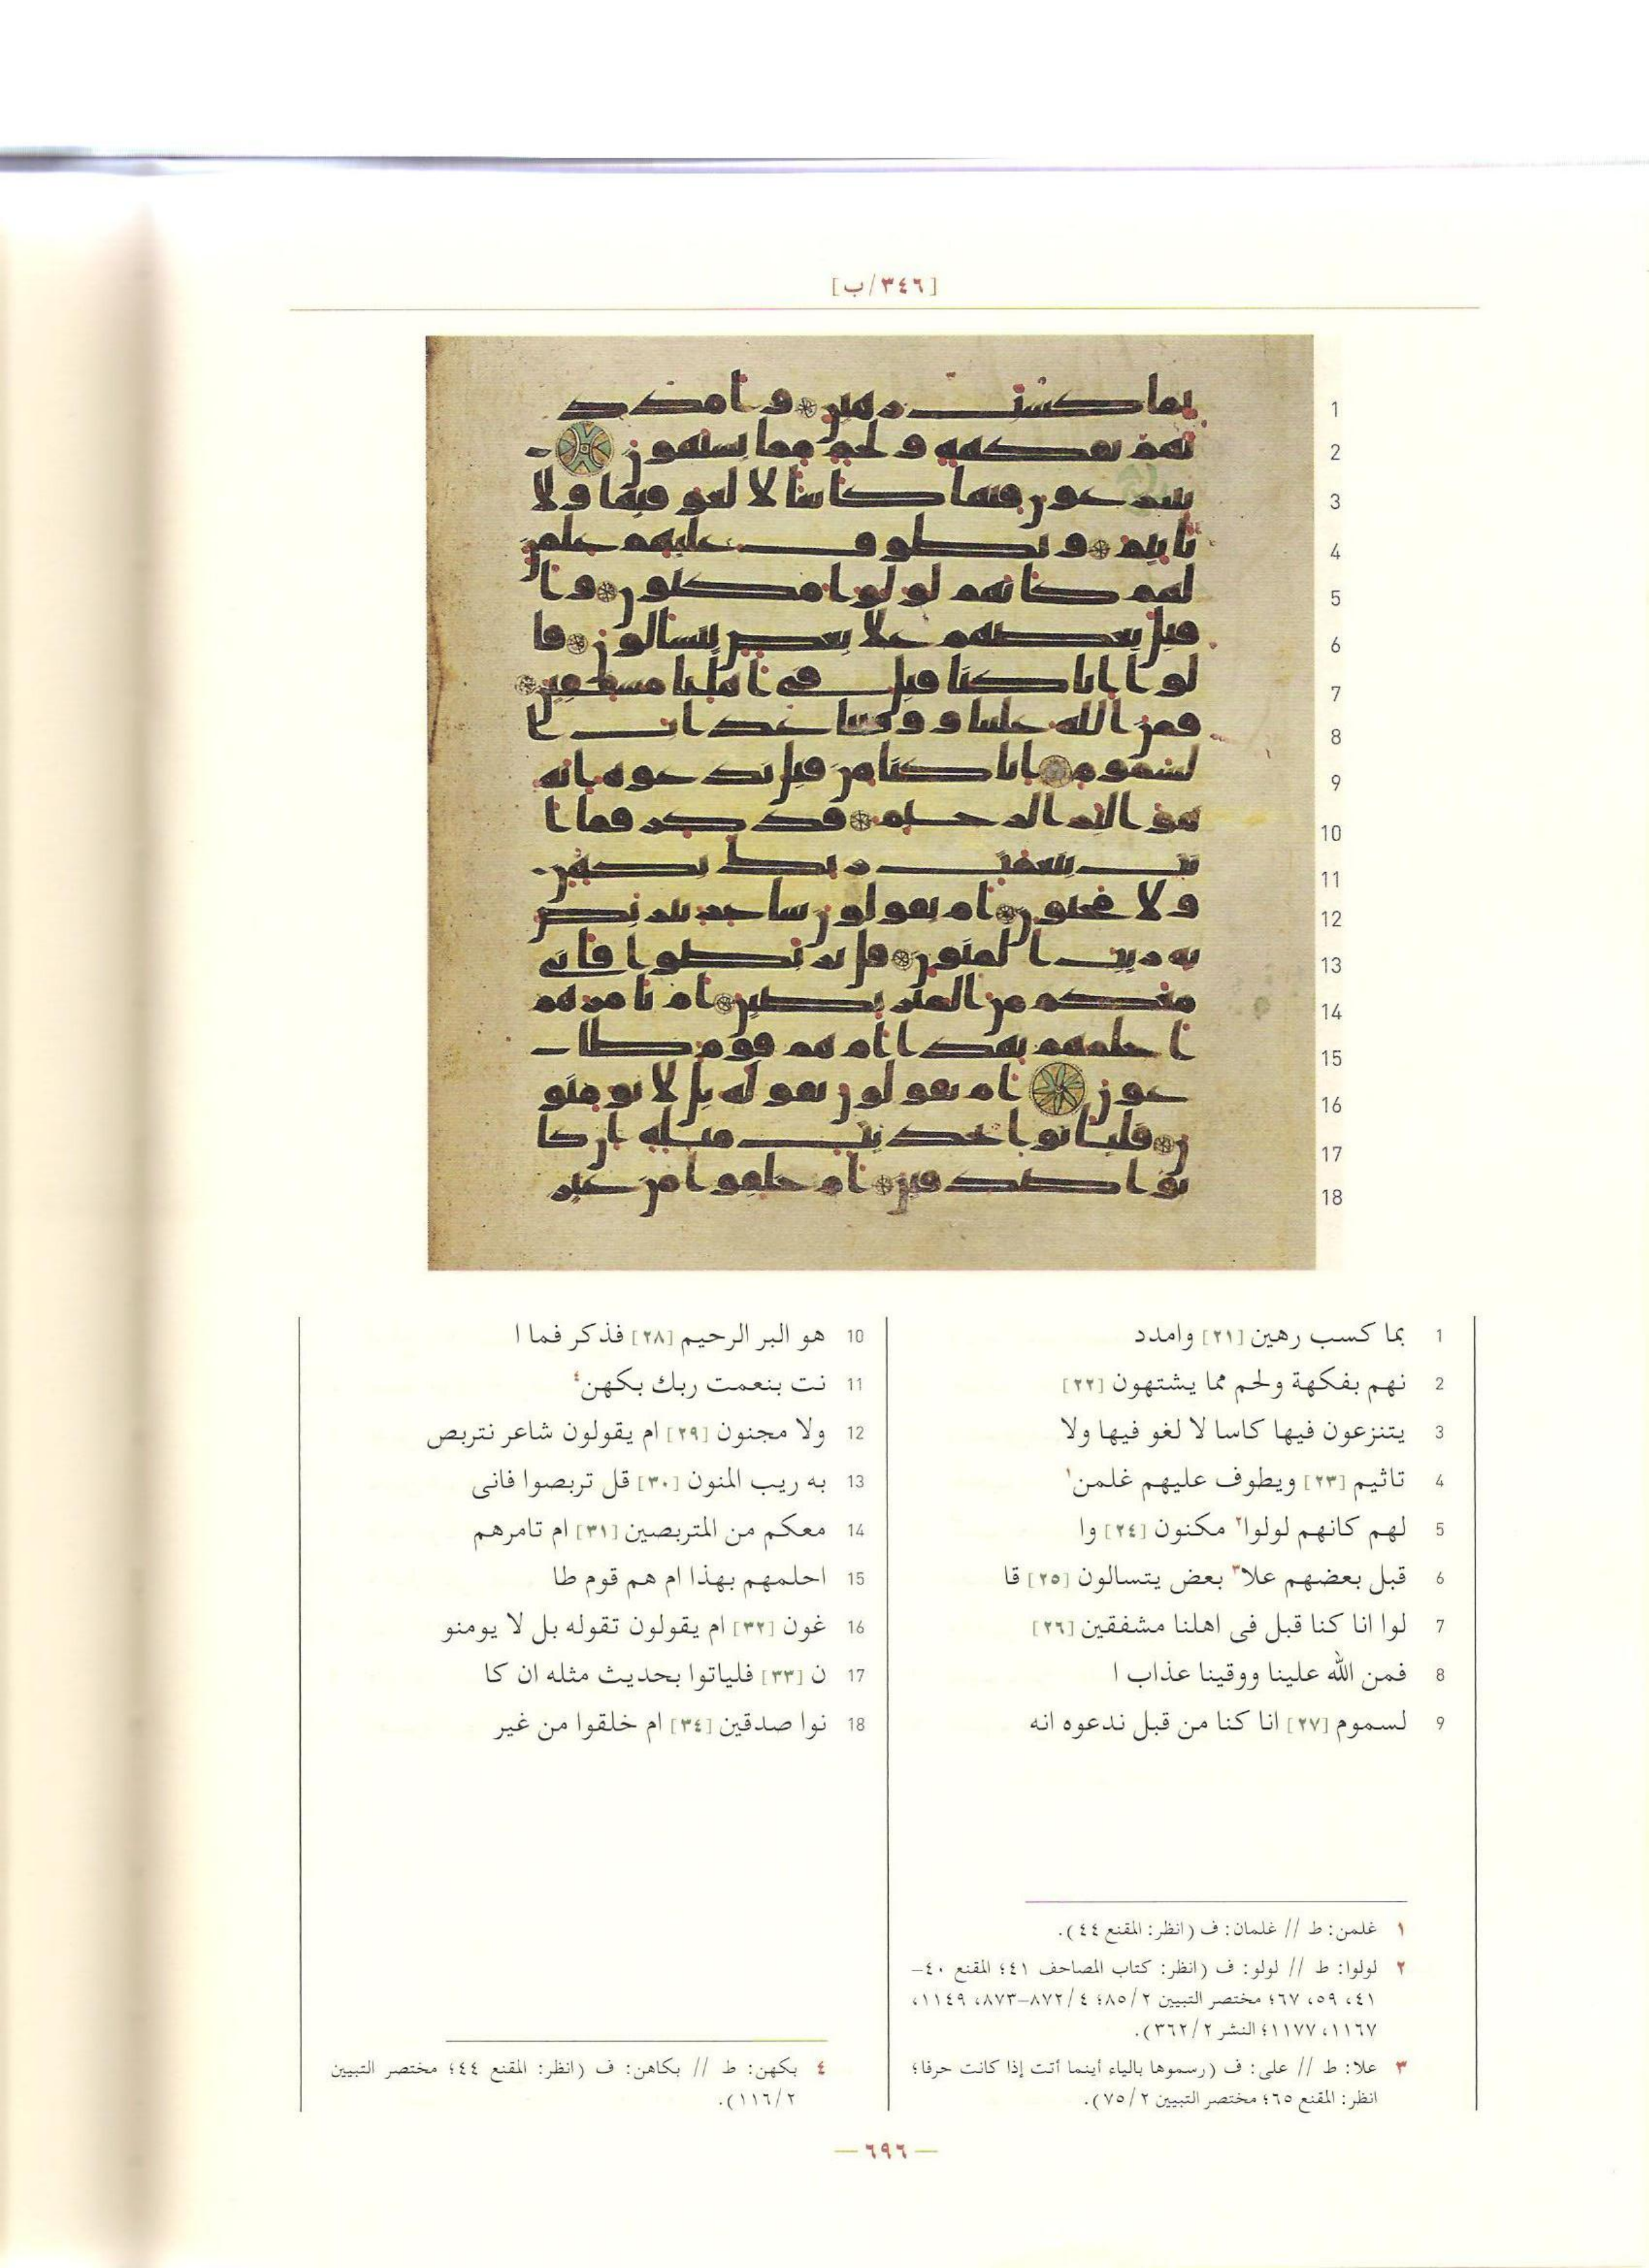 [٣٤٦/ب]
1 بما كسب رهين [٢١] وامدد
2 نهم بفكهة ولحم مما يشتهون [٢٢]
3 يتنزعون فيها كاسا لا لغو فيها ولا
4 تاثيم [٢٣] ويطوف عليهم غلمن١
5 لهم كانهم لولوا٢ مكنون [٢٤] وا
6 قبل بعضهم علا٣ بعض يتسالون [٢٥] قا
7 لوا انا كنا قبل فى اهلنا مشفقين [٢٦]
8 فمن الله علينا ووقينا عذاب ا
9 لسموم [٢٧] انا كنا من قبل ندعوه انه
10 هو البر الرحيم [٢٨] فذكر فما ا
11 نت بنعمت ربك بكهن٤
12 ولا مجنون [٢٩] ام يقولون شاعر نتربص
13 به ريب المنون [٣٠] قل تربصوا فانى
14 معكم من المتربصين [٣١] ام تامرهم
15 احلمهم بهذا ام هم قوم طا
16 غون [٣٢] ام يقولون تقوله بل لا يومنو
17 ن [٣٣] فلياتوا بحديث مثله ان كا
18 نوا صدقين [٣٤] ام خلقوا من غير
١ غلمن: ط // غلمان: ف (انظر: المقنع ٤٤).
٢ لولوا: ط // لولو: ف (انظر: كتاب المصاحف ٤١؛ المقنع ٤٠–
٤١، ٥٩، ٦٧؛ مختصر التبيين ٨٥/٢؛ ٨٧٢/٤–٨٧٣، ١١٤٩،
١١٦٧، ١١٧٧؛ النشر ٣٦٢/٢).
٣ علا: ط // على: ف (رسموها بالياء أينما أتت إذا كانت حرفا؛
انظر: المقنع ٦٥؛ مختصر التبيين ٧٥/٢).
٤ بكهن: ط // بكاهن: ف (انظر: المقنع ٤٤؛ مختصر التبيين
١١٦/٢).
— ٦٩٦ —